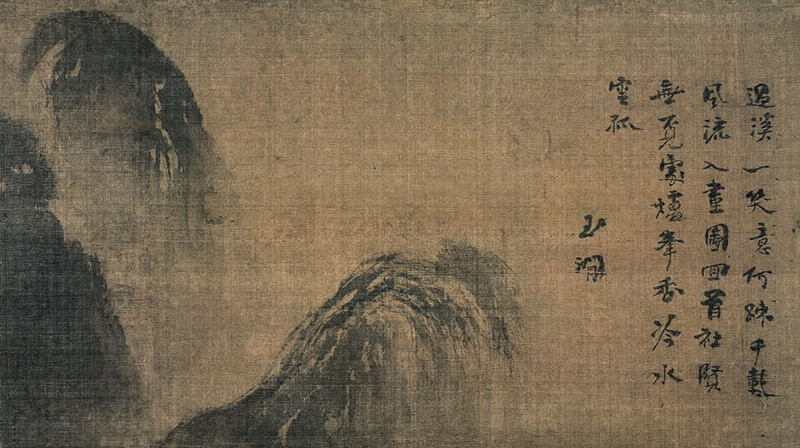 過溪一笑意何疎千載
風流入畫圖回首社賢
無覓處爐峯香冷水
雲孤
玉澗